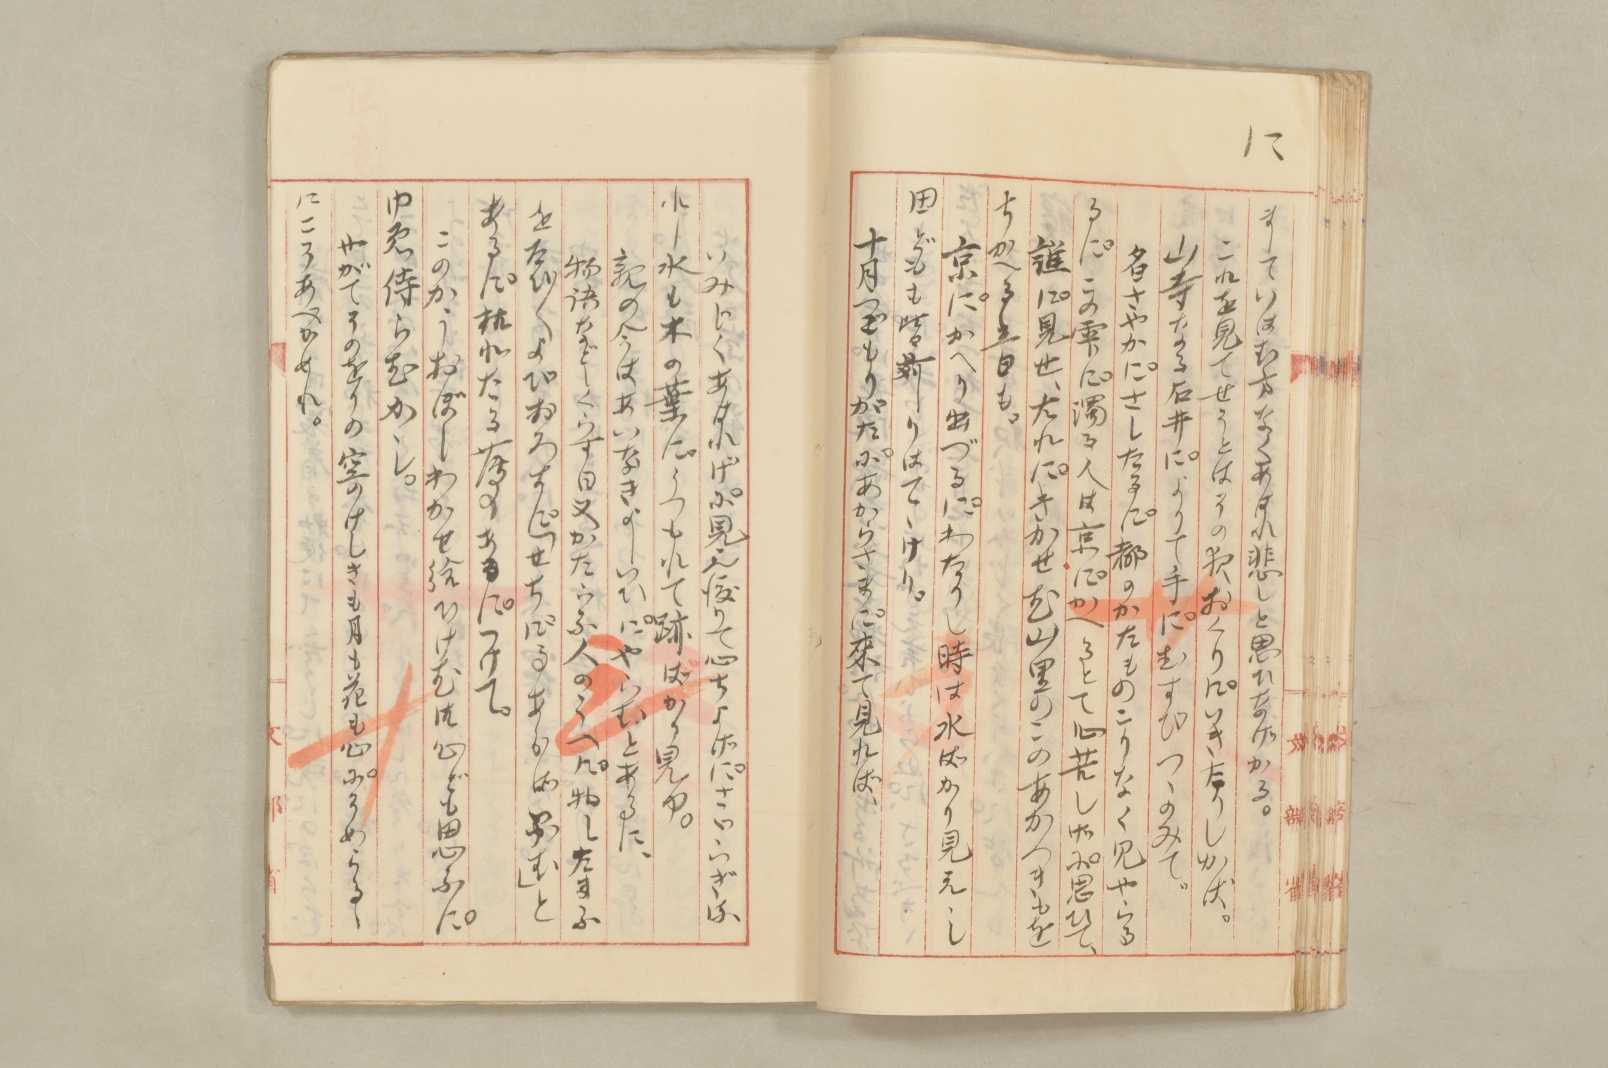 に
まていはむ方なくあはれ悲しと思ひなげかる。
これを見てせうとはその夜おくりにいきたりしかば。
山寺なる石井によりて手にむすびつゝのみて。
名さやかにさしたるに都のかたものこりなく見やらる
るにこの雫に濁る人は京にかへるとて心苦しげに思ひて、
誰に見せ、たれにきかせむ山里のこのあかつきもを
ちかへる音も。
京にかへり出づるにわたりし時は水ばかり見えし
田ども皆苅りはてゝけり。
十月つごもりがたにあからさまに来て見れば、
いみじくあはれげに見え渡りて心ちよげにさゝらぎ流
れし水も木の葉にうつもれて跡ばかり見ゆ。
親の今はあいなきよしいひにやらむとあるに、
物語などしくらす日又かたらふ人のうへに物したまふ
をたび〳〵よびおろすに「せちにるあらば からむ」と
あるに枯れたる薄のあるにつけて。
このかうおぼしわかせ給ひけむ御心ども思ふに。
ゆゑ侍らむかし。
やがてそのをりの空のけしきも月も花も心にそめらるゝ
にこそあべかめれ。
文部省